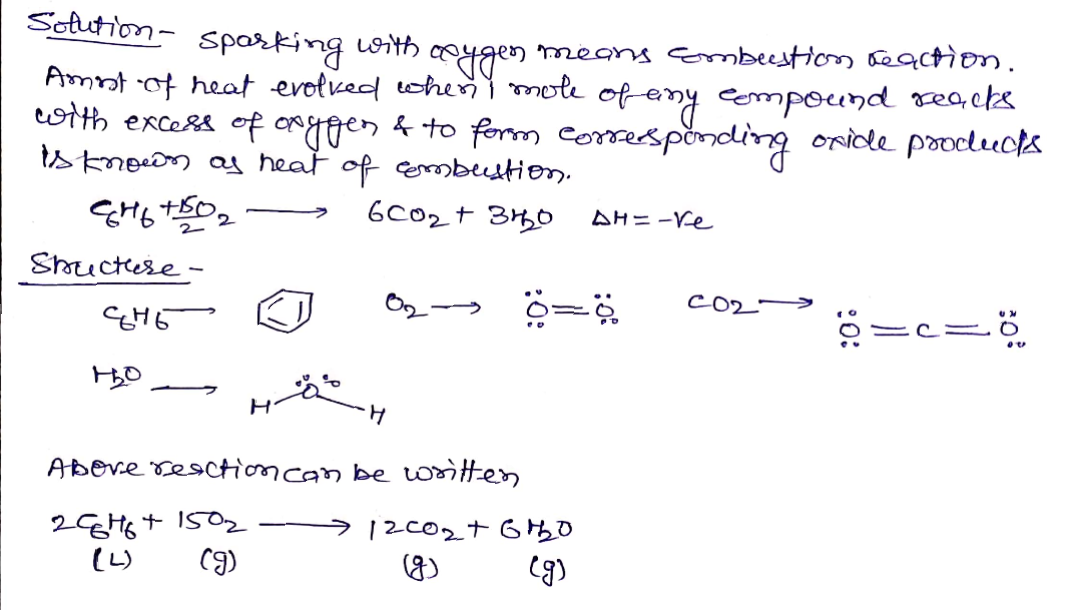 Solution - Sparking with oxygen means combustion reaction.
Amnt of heat evolved when 1 mole of any compound reacts
with excess of oxygen & to form corresponding oxide products
is known as heat of combustion.
C6H6 + 15/2 O2 → 6CO2 + 3H2O ΔH = -ve
Structure -
C6H6 → O2 → Ö=Ö CO2 → Ö=C=Ö
H2O → H Ö H
Above reaction can be written
2C6H6 + 15O2 → 12CO2 + 6H2O
(L) (g) (g) (g)